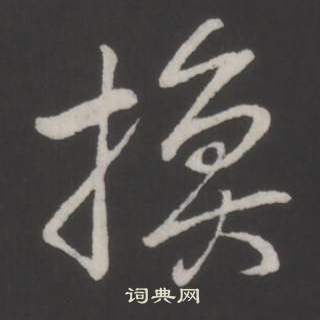 換
词典网